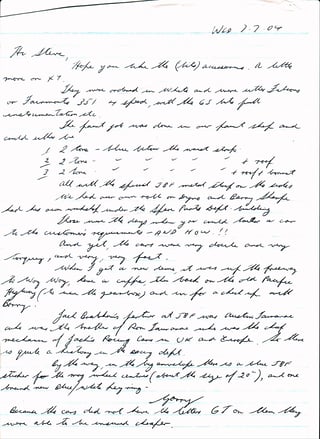 Wed 7.7.04
Hi Steve,
Hope you like the (late) accessories. A little
more on XT.
They were ordered in white and were either Falcons
or Fairmonts 351 4 speed, with the GS lets full
instrumentation etc.
The paint job was done in our paint shop and
could either be
1 2 tone - blue below the waist strip.
2 2 tone - " " " " + roof
3 2 tone - " " " " + roof + bonnet
All with the special JBF metal strip on the sides
We had our own
had his own workshop under the Spare Parts Dept. building
Those were the days when you could tailor a car
to the customers requirements - AND HOW !!
And yet, the cars were very docile and very
torquey, and very, very fast.
When I got a new demo, it was up the freeway
to Woy Woy, have a cuppa, then back on the old Pacific
Highway (to use the gearbox) and in for a check up with
Barry.
Jack Brabham's partner at JBF was Austin Tauranac
who was the brother of Ron Tauranac who was the chief
mechanic of Jack's Racing Cars in UK and Europe. So there
is quite a history in the racing dept.
By the way, in the big envelope there is a blue JBF
sticker for the mag wheel centres (about the size of 20¢), and one
brand new blue/white key ring.
Gerry
Because the cars did not have the letters GT on them they
were able to be insured cheaper.